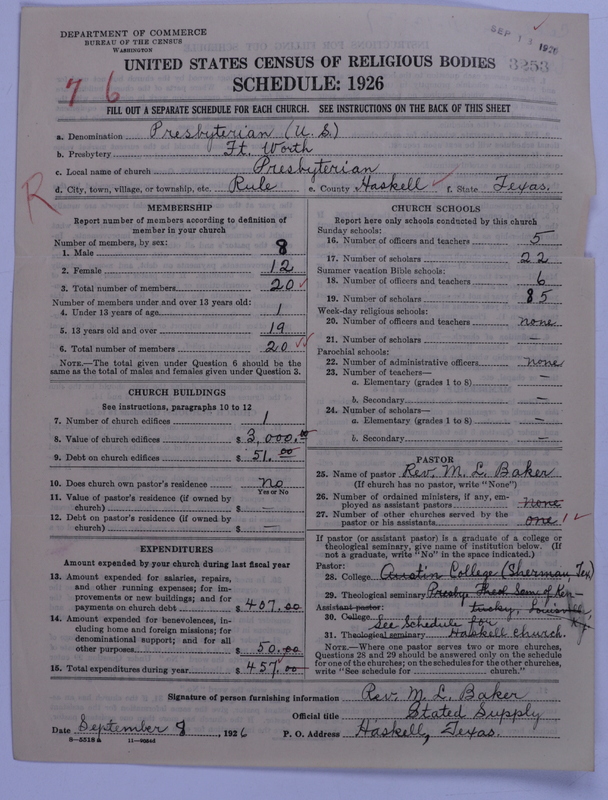 DEPARTMENT OF COMMERCE
BUREAU OF THE CENSUS
WASHINGTON
SEP 13 1926
3253
UNITED STATES CENSUS OF RELIGIOUS BODIES
SCHEDULE: 1926
7 6
FILL OUT A SEPARATE SCHEDULE FOR EACH CHURCH. SEE INSTRUCTIONS ON THE BACK OF THIS SHEET
a. Denomination Presbyterian (U. S.)
b. Presbytery Ft. Worth
c. Local name of church Presbyterian
d. City, town, village, or township, etc. Rule e. County Haskell f. State Texas.
R
MEMBERSHIP
Report number of members according to definition of
member in your church
Number of members, by sex:
1. Male 8
2. Female 12
3. Total number of members 20
Number of members under and over 13 years old:
4. Under 13 years of age 1
5. 13 years old and over 19
6. Total number of members 20
NOTE.—The total given under Question 6 should be the
same as the total of males and females given under Question 3.
CHURCH BUILDINGS
See instructions, paragraphs 10 to 12
7. Number of church edifices 1
8. Value of church edifices $ 3,000.00
9. Debt on church edifices $ 51.00
10. Does church own pastor's residence No
Yes or No
11. Value of pastor's residence (if owned by
church) $ —
12. Debt on pastor's residence (if owned by
church) $ —
EXPENDITURES
Amount expended by your church during last fiscal year
13. Amount expended for salaries, repairs,
and other running expenses; for im-
provements or new buildings; and for
payments on church debt $ 407.00
14. Amount expended for benevolences, in-
cluding home and foreign missions; for
denominational support; and for all
other purposes $ 50.00
15. Total expenditures during year $ 457.00
CHURCH SCHOOLS
Report here only schools conducted by this church
Sunday schools:
16. Number of officers and teachers 5
17. Number of scholars 22
Summer vacation Bible schools:
18. Number of officers and teachers 6
19. Number of scholars 85
Week-day religious schools:
20. Number of officers and teachers none
21. Number of scholars —
Parochial schools:
22. Number of administrative officers none
23. Number of teachers—
a. Elementary (grades 1 to 8) —
b. Secondary —
24. Number of scholars—
a. Elementary (grades 1 to 8) —
b. Secondary —
PASTOR
25. Name of pastor Rev. M. L. Baker
(If church has no pastor, write "None")
26. Number of ordained ministers, if any, em-
ployed as assistant pastors none
27. Number of other churches served by the
pastor or his assistants one 1
If pastor (or assistant pastor) is a graduate of a college or
theological seminary, give name of institution below. (If
not a graduate, write "No" in the space indicated.)
Pastor:
28. College Austin College (Sherman, Tex)
29. Theological seminary Presby. Theol. Sem. of Ken-
Assistant pastor: tucky, Louisville,
30. College See Schedule for Ky.
31. Theological seminary Haskell church.
NOTE.—Where one pastor serves two or more churches,
Questions 28 and 29 should be answered only on the schedule
for one of the churches; on the schedules for the other churches,
write "See schedule for church."
Signature of person furnishing information Rev. M. L. Baker
Official title Stated Supply
Date September 8, 1926 P. O. Address Haskell, Texas.